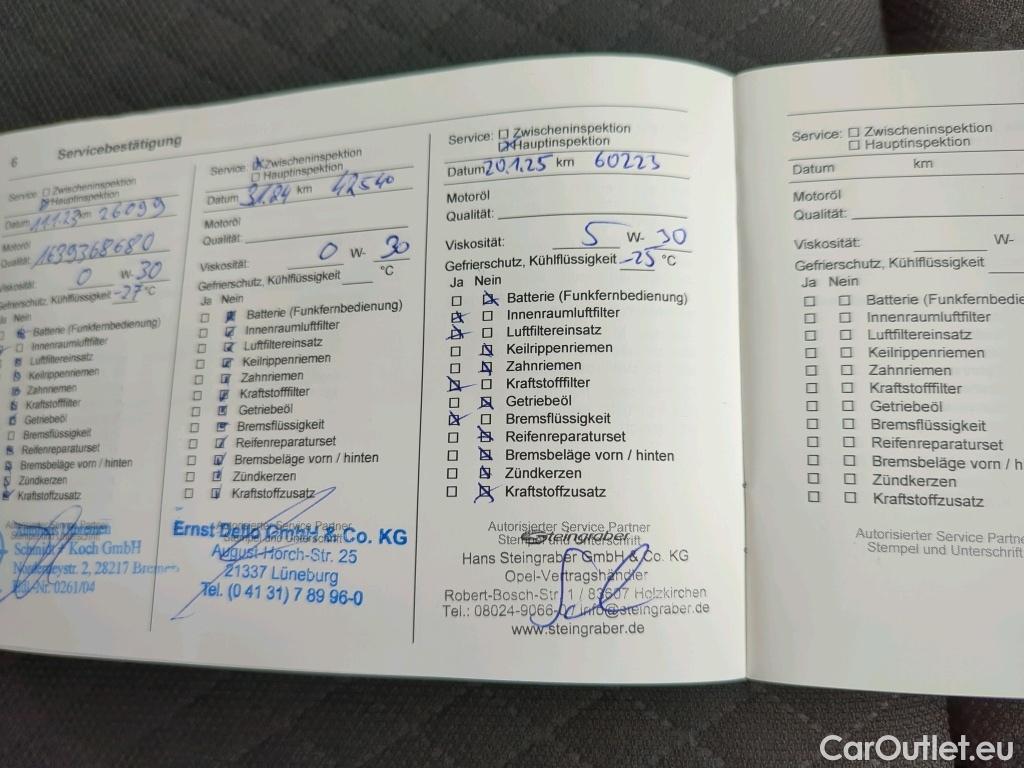 6 Servicebestätigung
Service: Zwischeninspektion
Hauptinspektion
Datum 11.1.23 km 26099
Motoröl
Qualität: 1639368680
Viskosität: 0 W- 30
Gefrierschutz, Kühlflüssigkeit -27 °C
Ja Nein
Batterie (Funkfernbedienung)
Innenraumluftfilter
Luftfiltereinsatz
Keilrippenriemen
Zahnriemen
Kraftstofffilter
Getriebeöl
Bremsflüssigkeit
Reifenreparaturset
Bremsbeläge vorn / hinten
Zündkerzen
Kraftstoffzusatz
Schmidt + Koch GmbH
2, 28217 Bremen
0261/04
Service: Zwischeninspektion
Hauptinspektion
Datum 31.24 km 42540
Motoröl
Qualität:
Viskosität: 0 W- 30
Gefrierschutz, Kühlflüssigkeit °C
Ja Nein
Batterie (Funkfernbedienung)
Innenraumluftfilter
Luftfiltereinsatz
Keilrippenriemen
Zahnriemen
Kraftstofffilter
Getriebeöl
Bremsflüssigkeit
Reifenreparaturset
Bremsbeläge vorn / hinten
Zündkerzen
Kraftstoffzusatz
Autorisierter Service Partner
Stempel und Unterschrift
Ernst Dello GmbH & Co. KG
August-Horch-Str. 25
21337 Lüneburg
Tel. (0 41 31) 7 89 96-0
Service: Zwischeninspektion
Hauptinspektion
Datum 20.1.25 km 60223
Motoröl
Qualität:
Viskosität: 5 W- 30
Gefrierschutz, Kühlflüssigkeit -25 °C
Ja Nein
Batterie (Funkfernbedienung)
Innenraumluftfilter
Luftfiltereinsatz
Keilrippenriemen
Zahnriemen
Kraftstofffilter
Getriebeöl
Bremsflüssigkeit
Reifenreparaturset
Bremsbeläge vorn / hinten
Zündkerzen
Kraftstoffzusatz
Autorisierter Service Partner
Stempel und Unterschrift
Steingraber
Hans Steingraber GmbH & Co. KG
Opel-Vertragshändler
Robert-Bosch-Str. 1 / 83607 Holzkirchen
Tel.: 08024-9066-0, info@steingraber.de
www.steingraber.de
Service: Zwischeninspektion
Hauptinspektion
Datum km
Motoröl
Qualität:
Viskosität: W-
Gefrierschutz, Kühlflüssigkeit
Ja Nein
Batterie (Funkfernbedie
Innenraumluftfilter
Luftfiltereinsatz
Keilrippenriemen
Zahnriemen
Kraftstofffilter
Getriebeöl
Bremsflüssigkeit
Reifenreparaturset
Bremsbeläge vorn / h
Zündkerzen
Kraftstoffzusatz
Autorisierter Service Partn
Stempel und Unterschrift
CarOutlet.eu